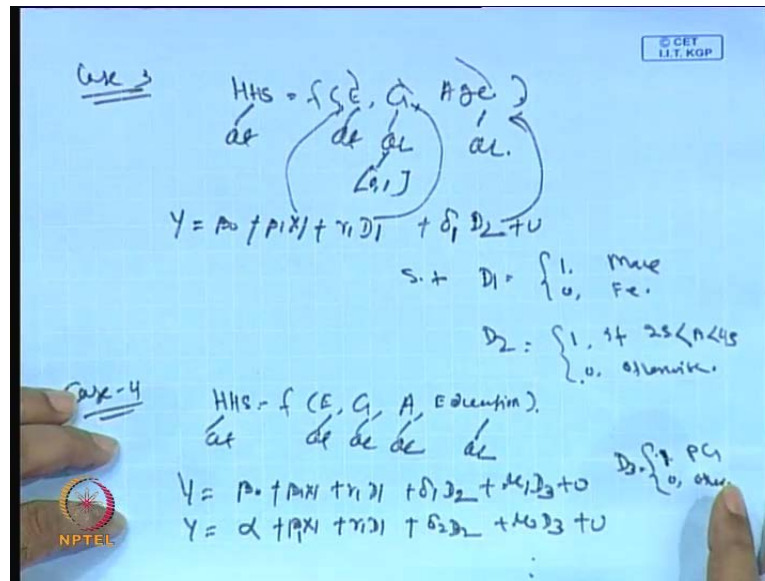 © CET
I.I.T. KGP
Case 3
HHS = f (E, G, Age)
[0,1]
Y = β0 + β1X1 + γ1D1 + δ1 D2 + U
S.t D1 = { 1, Male
0, Fe.
D2 = { 1, if 25<A<45
0, otherwise.
Case-4
HHS = f (E, G, A, Education).
D3 = { 1 PG
0, other.
Y = β0 + β1X1 + γ1D1 + δ1D2 + μ1D3 + U
Y = α + β1X1 + γ1D1 + δ2D2 + D3 + U
NPTEL